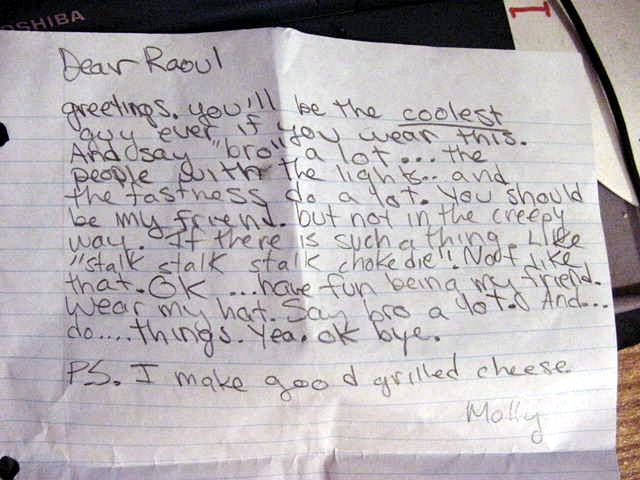 OSHIBA
1
Dear Raoul
greetings. you'll be the coolest
guy ever if you wear this.
And say "bro" a lot... the
people with the lights.. and
the fastness do a lot. You should
be my friend. but not in the creepy
way. If there is such a thing. Like
"stalk stalk stalk choke die"! Noot like
that. OK ...have fun being my friend.
Wear my hat. Say bro a lot. And...
do....things. Yea. ok bye.
PS. I make good grilled cheese
Molly